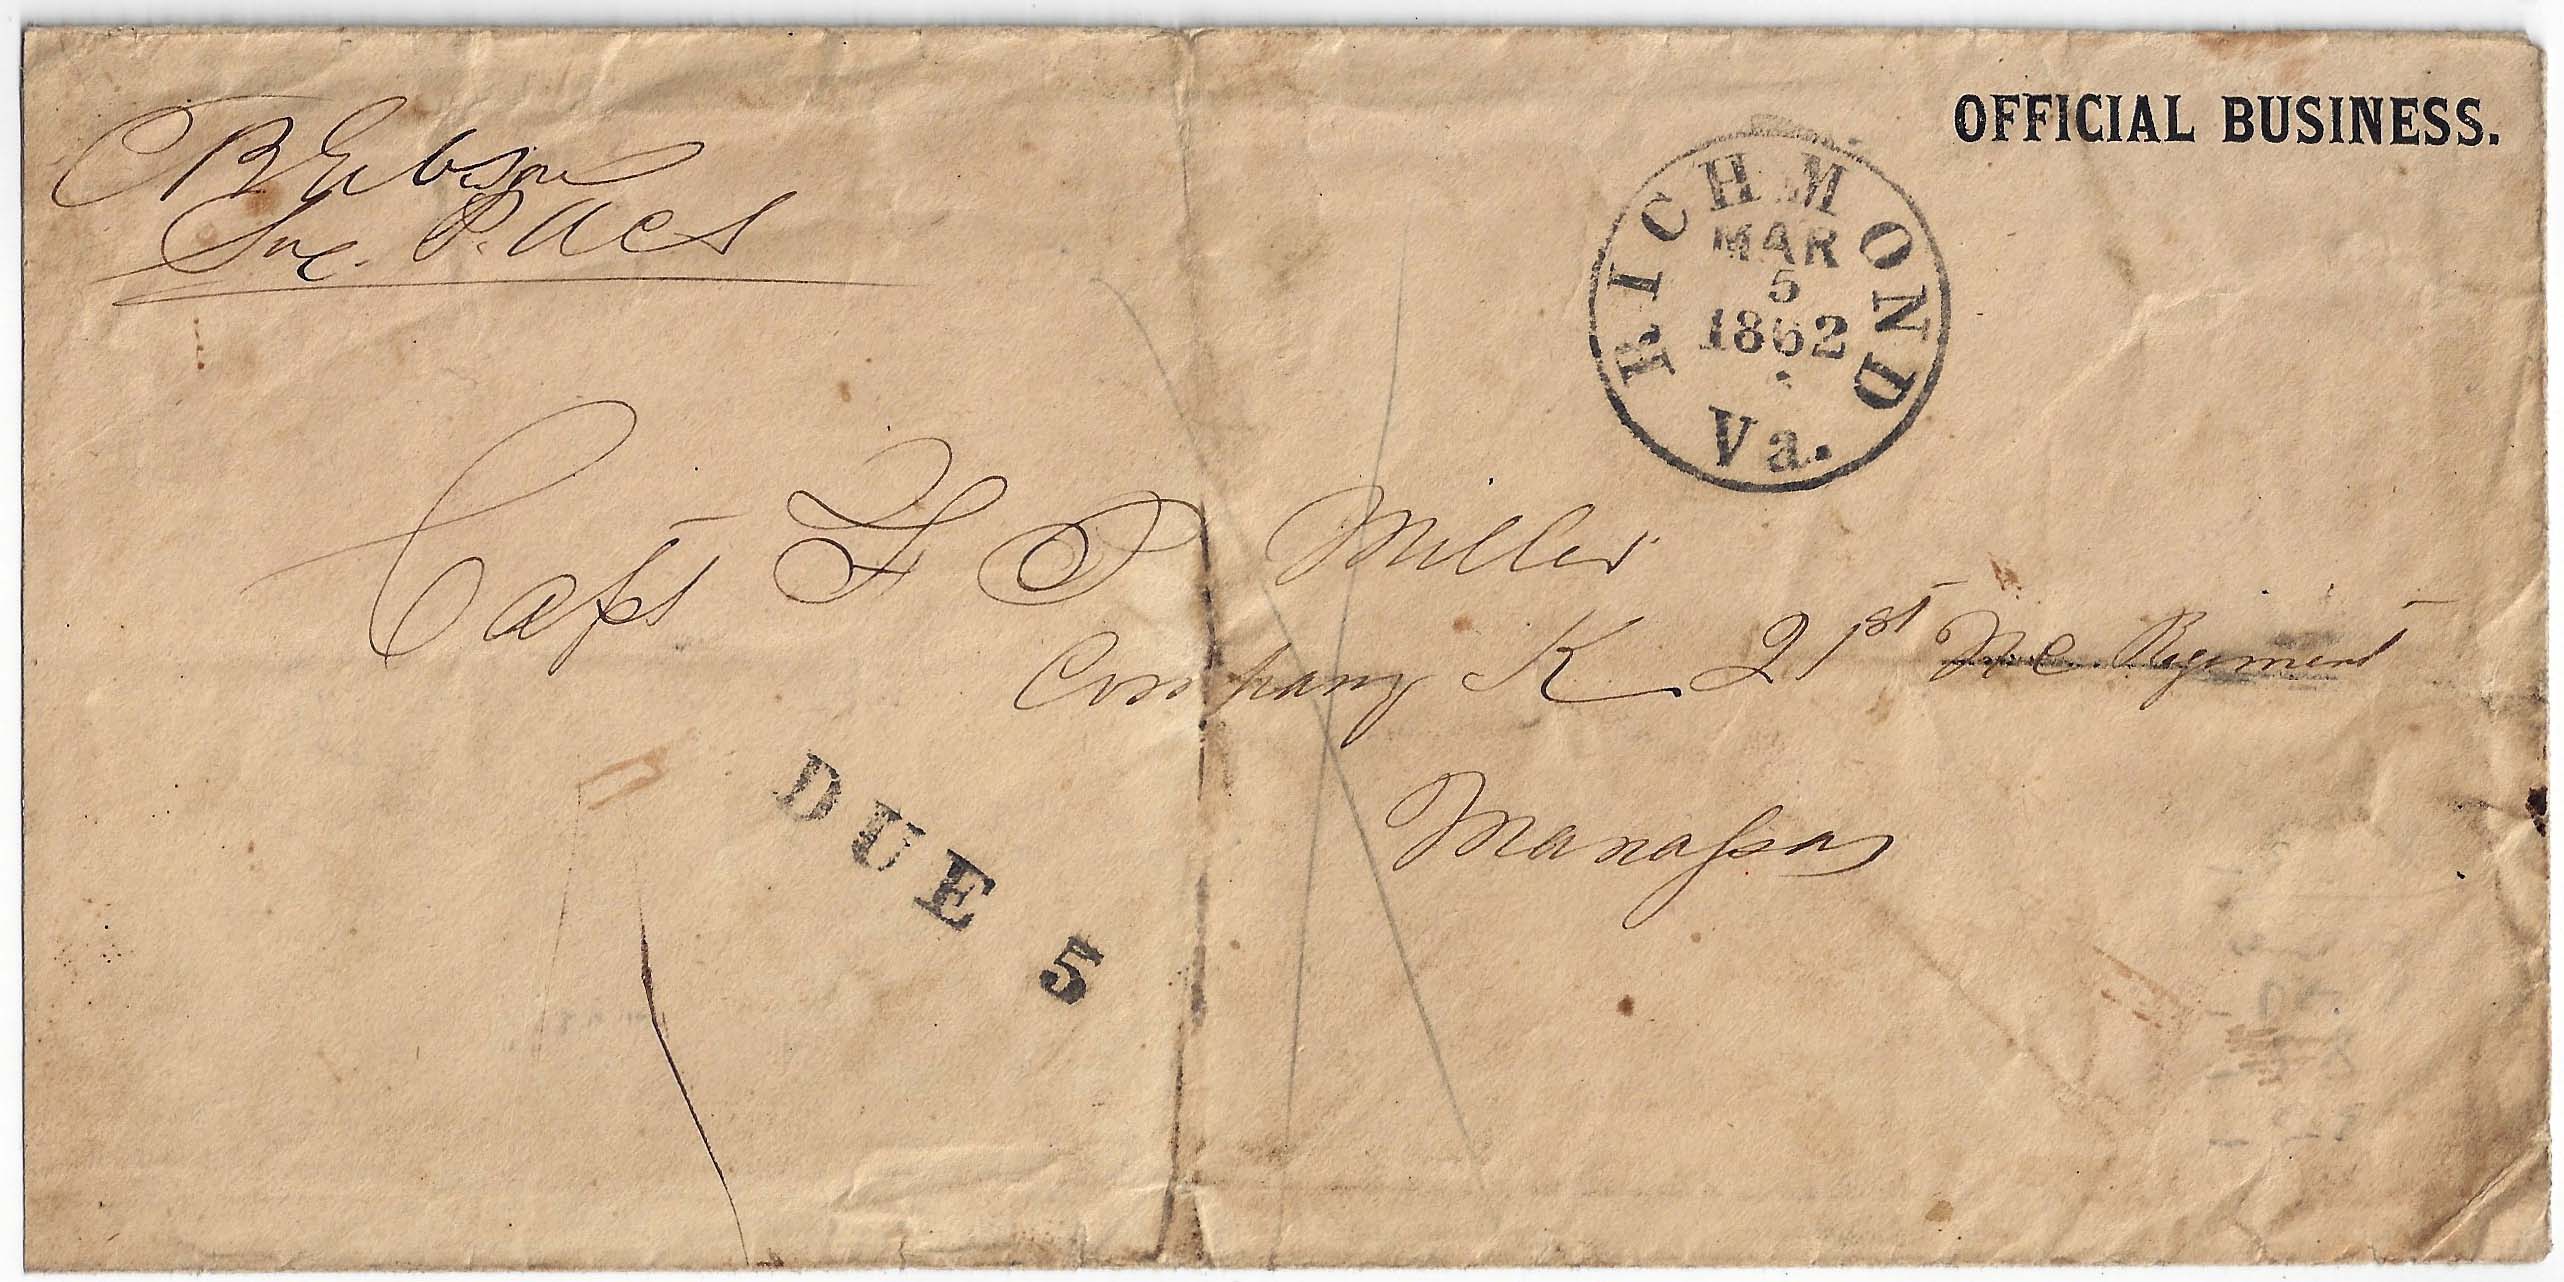 OFFICIAL BUSINESS.
C B Gibson
Sur. P. Acs
RICHMOND
MAR
5
1862
Va.
Capt F P Miller
Company K 21st N C Regiment
Manassas
DUE 5